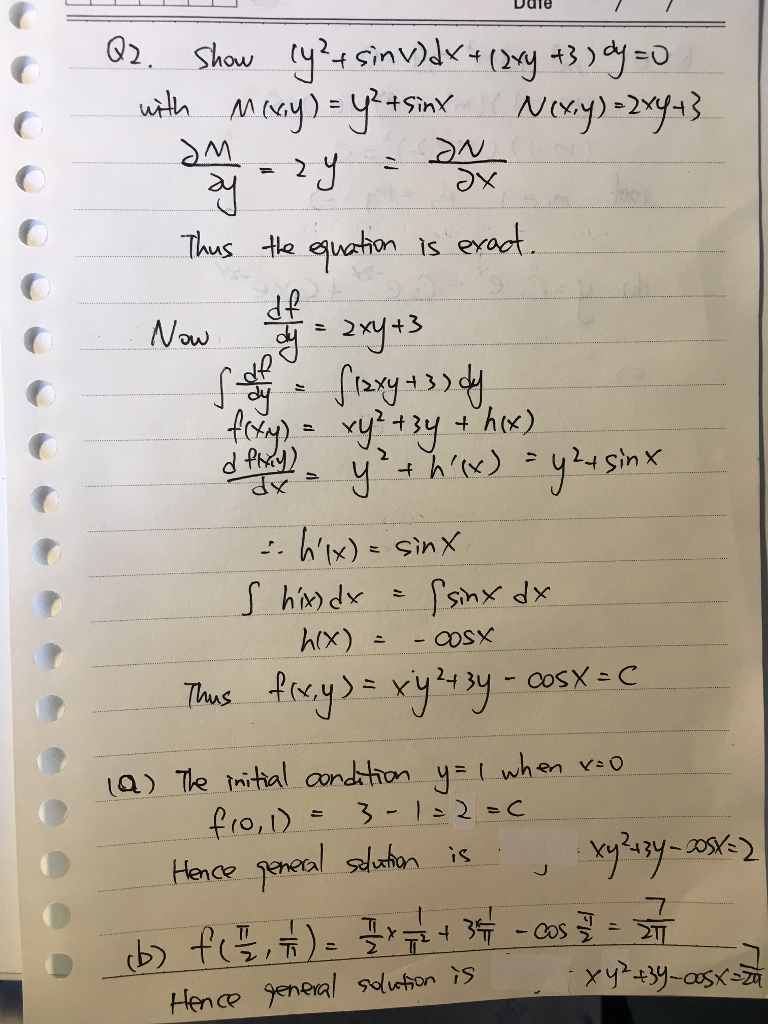 Date / /
Q2. Show (y²+sinx)dx+(2xy+3)dy=0
with M(x,y) = y²+sinx N(x,y)=2xy+3
∂M/∂y = 2y = ∂N/∂x
Thus the equation is exact.
Now df/dy = 2xy+3
∫ df/dy = ∫(2xy+3)dy
f(x,y) = xy²+3y + h(x)
d f(x,y)/dx = y² + h'(x) = y²+sinx
∴ h'(x) = sinx
∫ h'(x)dx = ∫sinx dx
h(x) = -cosx
Thus f(x,y) = xy²+3y - cosx = C
(a) The initial condition y=1 when x=0
f(0,1) = 3 - 1 = 2 = C
Hence general solution is xy²+3y-cosx=2
(b) f(π/2, 1/π) = π/2 × 1/π² + 3×1/π - cos π/2 = 7/2π
Hence general solution is xy²+3y-cosx=7/2π